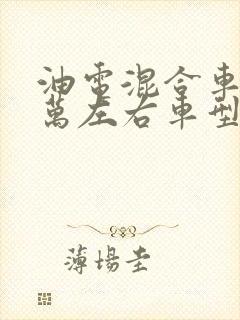 油電混合車
萬左右車型
薄場圭